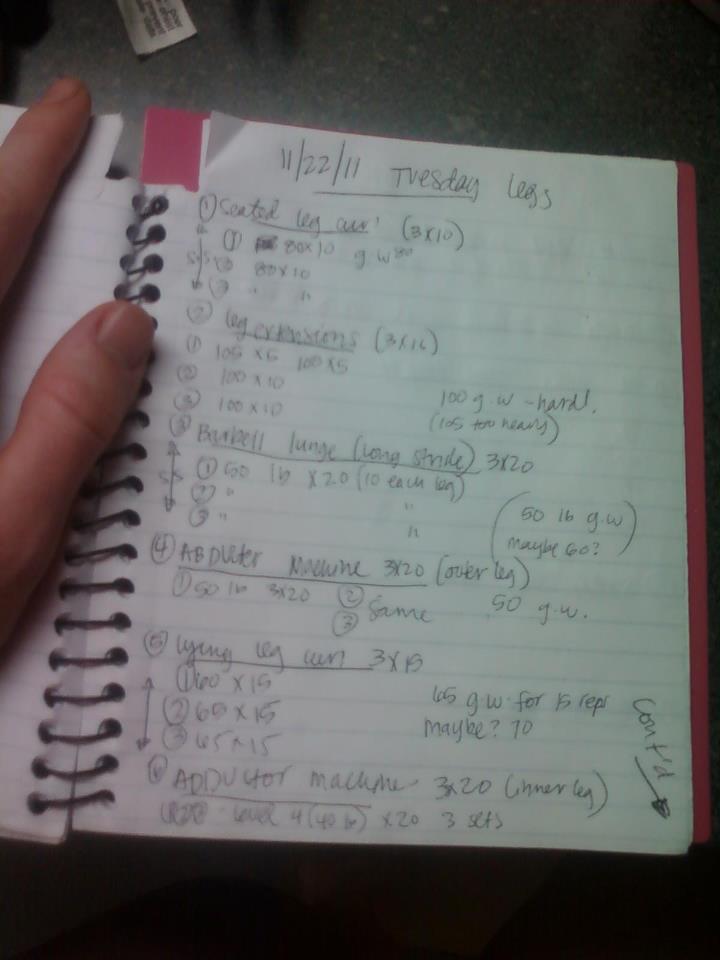 11/22/11 Tuesday legs
① Seated leg curl (3x10)
① 80x10 g.w 80
SS ② 80x10
③ " "
② leg extensions (3x10)
① 105 x5 100x5
② 100x10
③ 100x10
100 g.w - hard!
(105 too heavy)
③ Barbell lunge (long stride) 3x20
① 50 lb x20 (10 each leg)
SS ② " "
③ " "
(50 lb g.w
maybe 60?)
④ ABDUctor Machine 3x20 (outer leg)
① 50 lb 3x20 ② Same
③
50 g.w.
⑤ Lying leg curl 3x15
① 60 x 15
② 65x15
③ 65x15
65 g.w for 15 reps
maybe? 70
⑥ ADDUctor machine 3x20 (inner leg)
level 4 (40 lb) x20 3 sets
cont'd